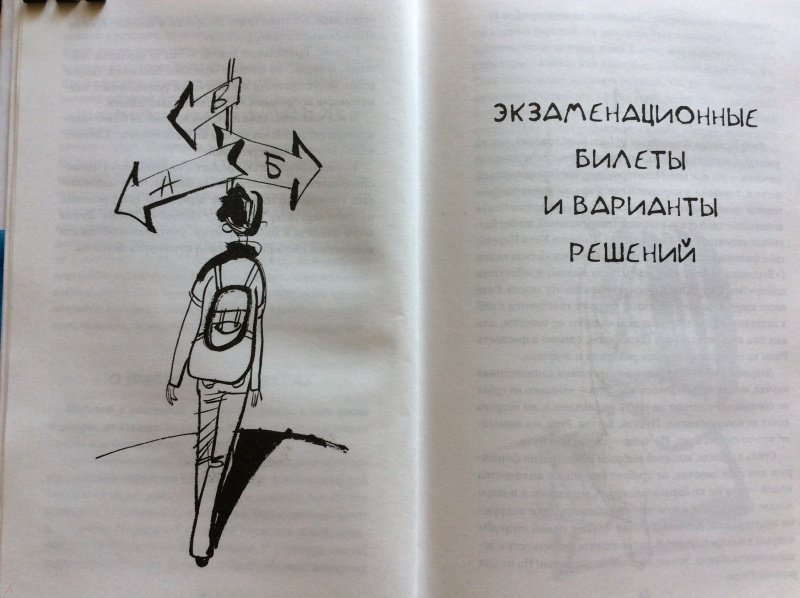 В
Б
А
ЭКЗАМЕНАЦИОННЫЕ
БИЛЕТЫ
И ВАРИАНТЫ
РЕШЕНИЙ